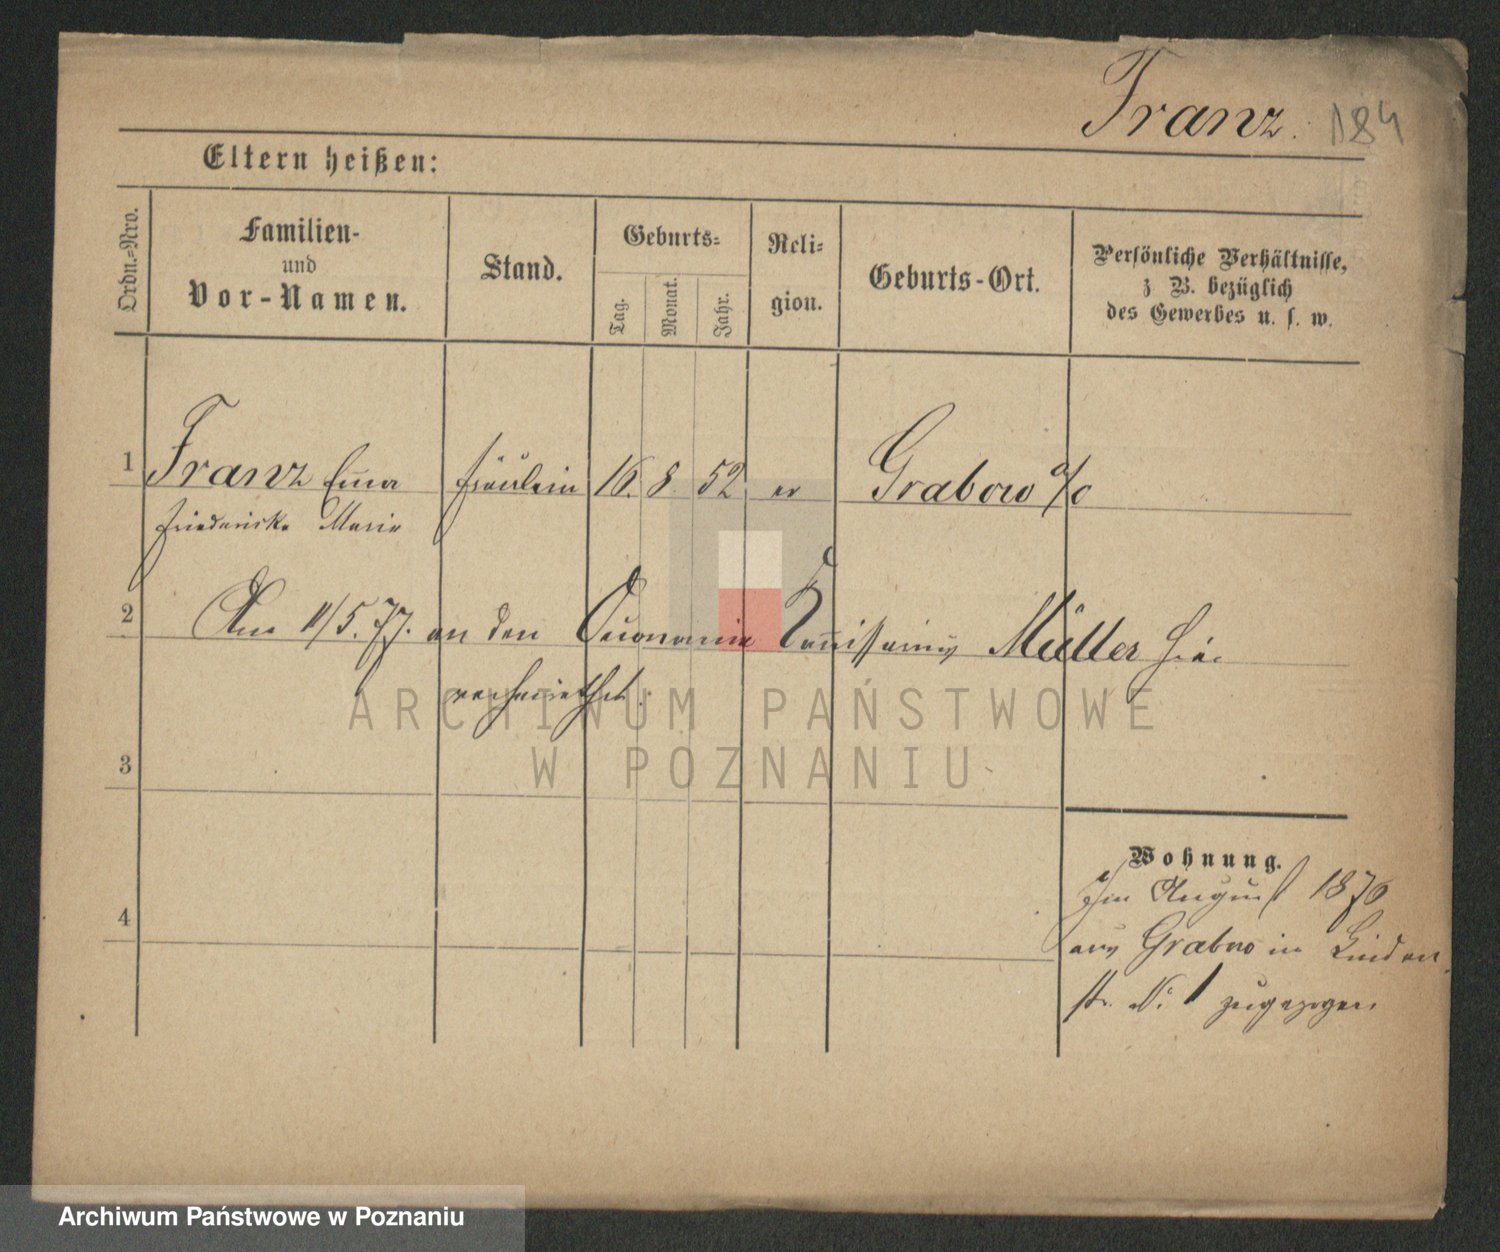 Franz. 184
Eltern heißen:
Ordn.=Nro.
Familien-
und
Vor-Namen.
Stand.
Geburts=
Tag.
Monat.
Jahr.
Reli=
gion.
Geburts-Ort.
Persönliche Verhältnisse,
z B. bezüglich
des Gewerbes u. s. w.
1 Franz Emma Fräulein 16. 8 52 ev Grabow a/O
Friederike Marie
2 Am 11/5. 77. an den Oeconomie Commissarius Müller hier
verheirathet.
3
4
Wohnung.
Im August 1876
aus Grabow in Linden
str. No. 1 zugezogen
ARCHIWUM PAŃSTWOWE
W POZNANIU
Archiwum Państwowe w Poznaniu